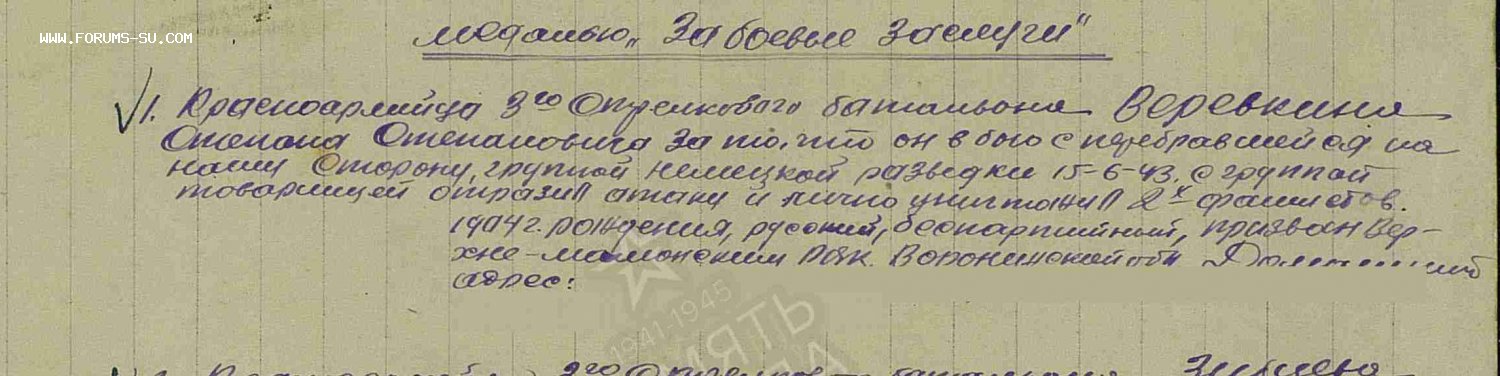 WWW.FORUMS-SU.COM
медалью „За боевые заслуги"
√1. Красноармейца 3го Стрелкового батальона Веревкина
Степана Степановича За то, что он в бою с перебравшейся на
нашу сторону, группой немецкой разведки 15-6-43. с группой
товарищей отразил атаку и лично уничтожил 2х фашистов.
1904 г. рождения, русский, беспартийный, призван Вер-
хне-мамонским РВК. Воронежской обл Домашний
адрес:
1941-1945
ПАМЯТЬ
3го Стрелков батальона